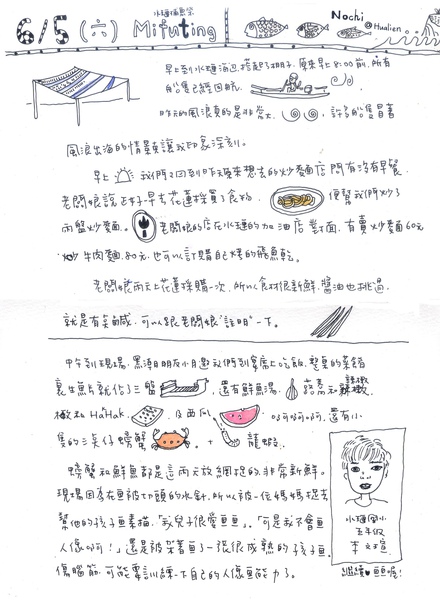 水璉捕魚祭
6/5 (六) Mifuting
Nochi
@Hualien
早上到水璉海邊,搭起了棚子,原來早上8:00前,所有
船隻已經回航。
昨天的風浪真的是非常大,許多船隻冒著
風浪出海的情景真讓我印象深刻。
早上 我們又回到昨天要想去的炒麵店問有沒有早餐,
老闆娘說正好早去花蓮採買了食物, 便幫我們炒了
兩盤炒麵。老闆娘的店在水璉的加油店對面,有賣炒麵60元
炒牛肉麵80元,也可以訂購自己烤的飛魚乾。
老闆娘兩天上花蓮採購一次,所以食材很新鮮,醬油也挑過,
就是有点鹹,可以跟老闆娘"註明"一下。
中午到現場,
邀我們到宴席上吃飯,整桌的菜餚
裏生魚片就佔了三盤,還有鮮魚湯、
和辣椒、
HaHak、及西瓜。啊啊啊啊,還有小
隻的三点仔螃蟹。+ 龍蝦。
螃蟹和鮮魚都是這兩天放網捉的,非常新鮮。
現場因為在畫被切頭的水針,所以被一位媽媽捉去
幫他的孩子畫素描,「我兒子很愛畫畫。」「可是我不會畫
人像啊!」還是被架著畫了一張很成熟的孩子畫。
傷腦筋,可能要訓練一下自己的人像畫能力了。
水璉國小
五年級
李文瑄
繼續♥畫喔!